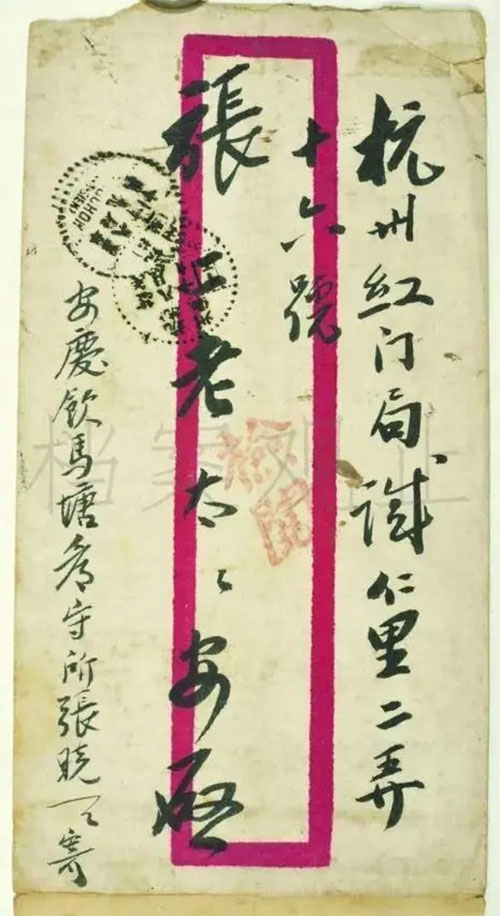 杭州红门局诚仁里二弄
十六號
張老太々安啟
安慶飲馬塘看守所張晓寄